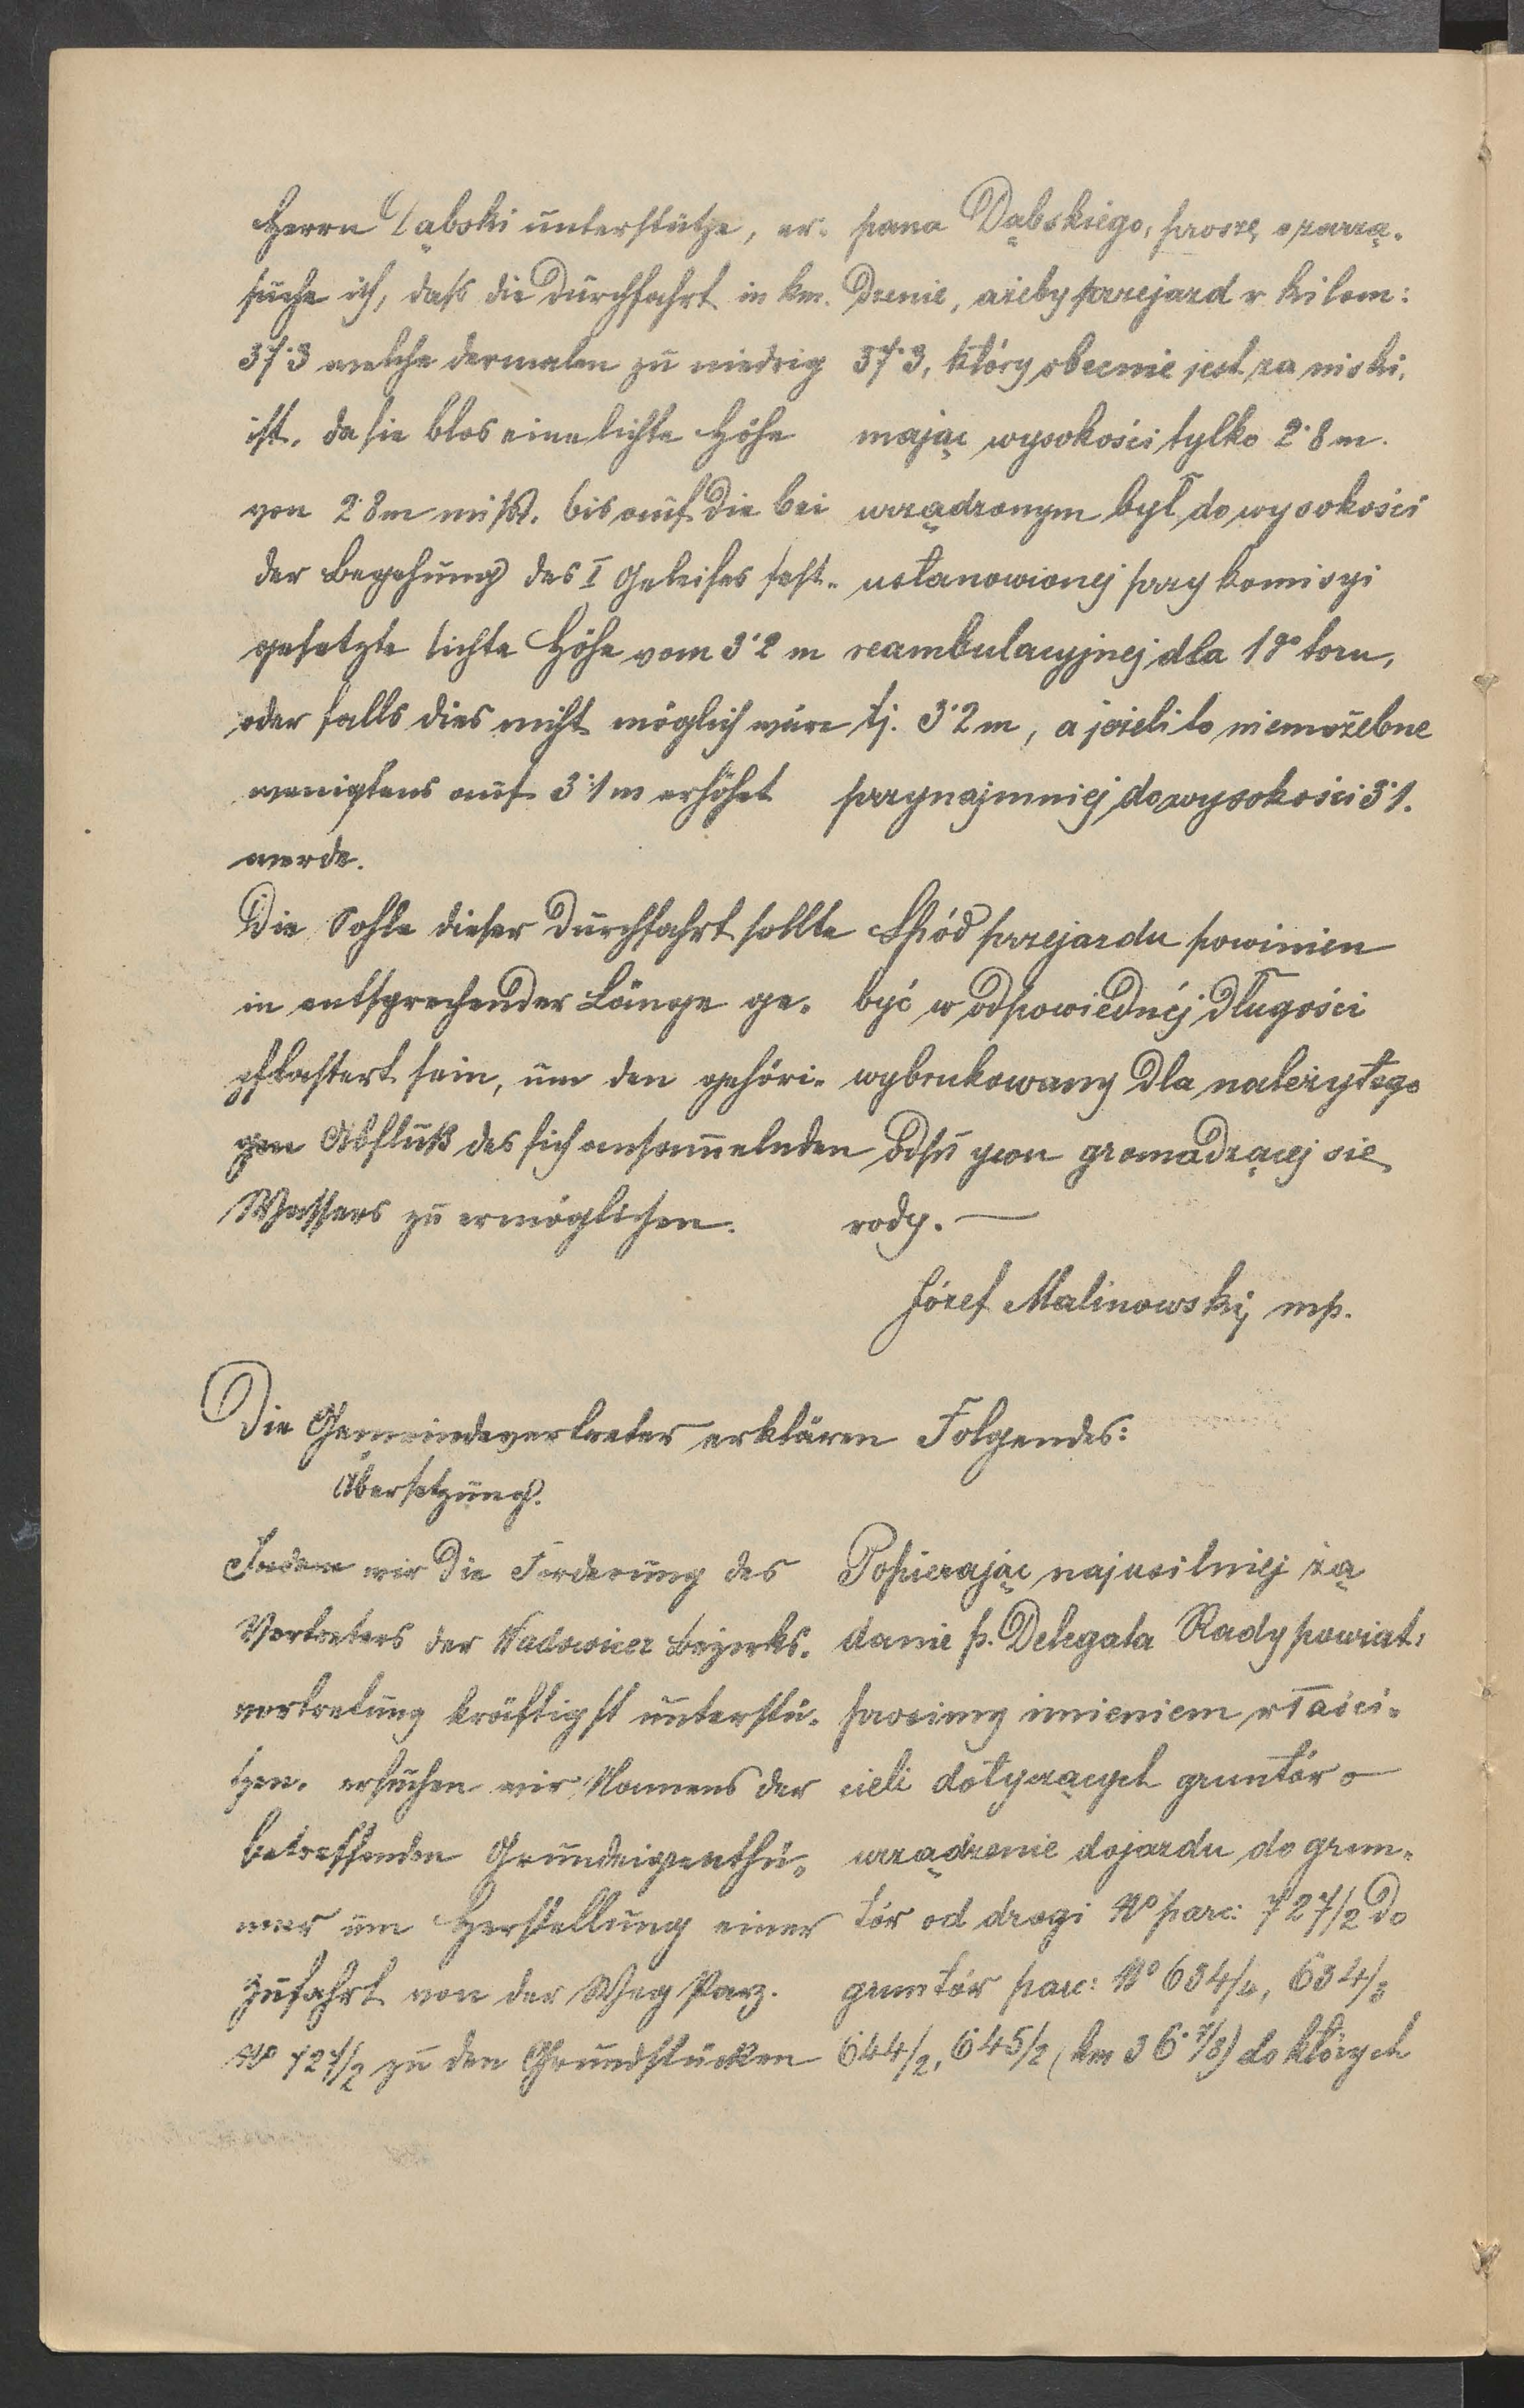 Herrn Dąbski unterstütze, er-
suche ich, daß die Durchfahrt in km.
37·3 welche dermalen zu niedrig
ist, da sie blos eine lichte Höhe
von 2·8 m mißt, bis auf die bei
der Begehung des I Geleises fest-
gesetzte lichte Höhe vom 3·2 m
oder falls dies nicht möglich wäre
wenigstens auf 3·1 m erhöht
werde.
Die Sohle dieser Durchfahrt sollte
in entsprechender Länge ge-
pflastert sein, um den gehöri-
gen Abfluß des sich ansam̅elnden
Wassers zu ermöglichen.
pana Dąbskiego, proszę o zarzą-
dzenie, ażeby przejazd v kilom:
37·3, który obecnie jest za niski,
mając wysokości tylko 2·8 m.
urządzonym był do wysokości
ustanowionej przy komisyi
reambulacyjnej dla 1go toru,
tj. 3·2 m, a jeżeli to niemożebne
przynajmniej do wysokości 3·1.
Spód przejazdu powinien
być w odpowiedniéj długości
wybrukowany dla należytego
gromadzącej się
vody. —
Józef Malinowski, mp.
Die Gemeindevertreter erklären Folgendes:
Übersetzung.
Indem wir die Forderung des
Vertreters der Wadowicer Bezirks-
vertretung kräftigst unterstü-
tzen, ersuchen wir Namens der
betreffenden Grundeigenthü-
mer um Herstellung einer
Zufahrt von der Weg Parz.
No 727/2 zu den Grundstücken
Popierając najusilniej żą
danie p. Delegata Rady powiat:
prosimy imieniem vłaści-
cieli dotyczących gruntóv o
urządzenie dojazdu do grun-
tóv od drogi No parc: 727/2 do
gruntóv parc: No 634/4, 634/3
644/2, 645/2 (km 36·7/8) do których